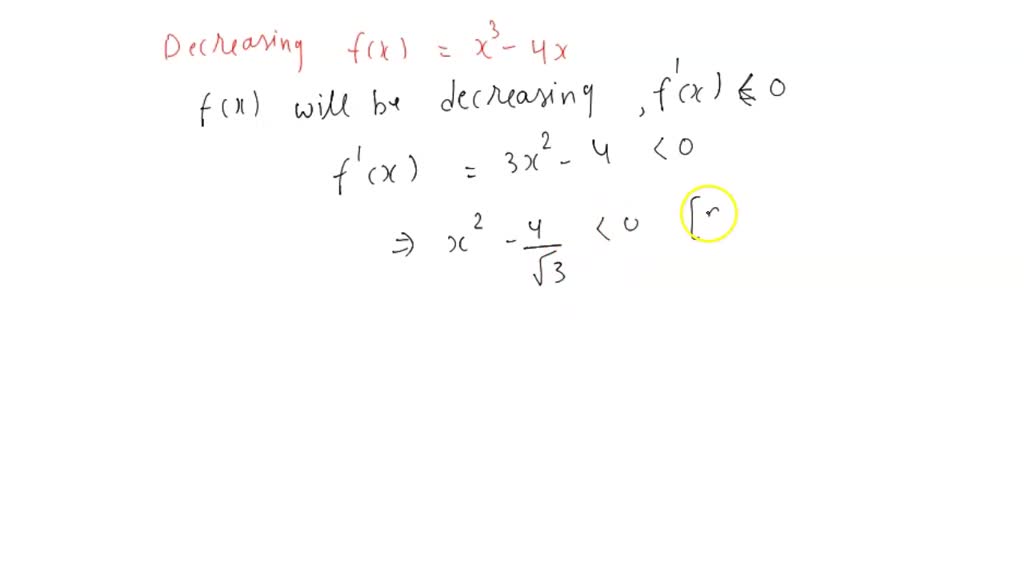 Decreasing f(x) = x³ - 4x
f(x) will be decreasing, f'(x) < 0
f'(x) = 3x² - 4 < 0
⇒ x² - 4/√3 < 0 [